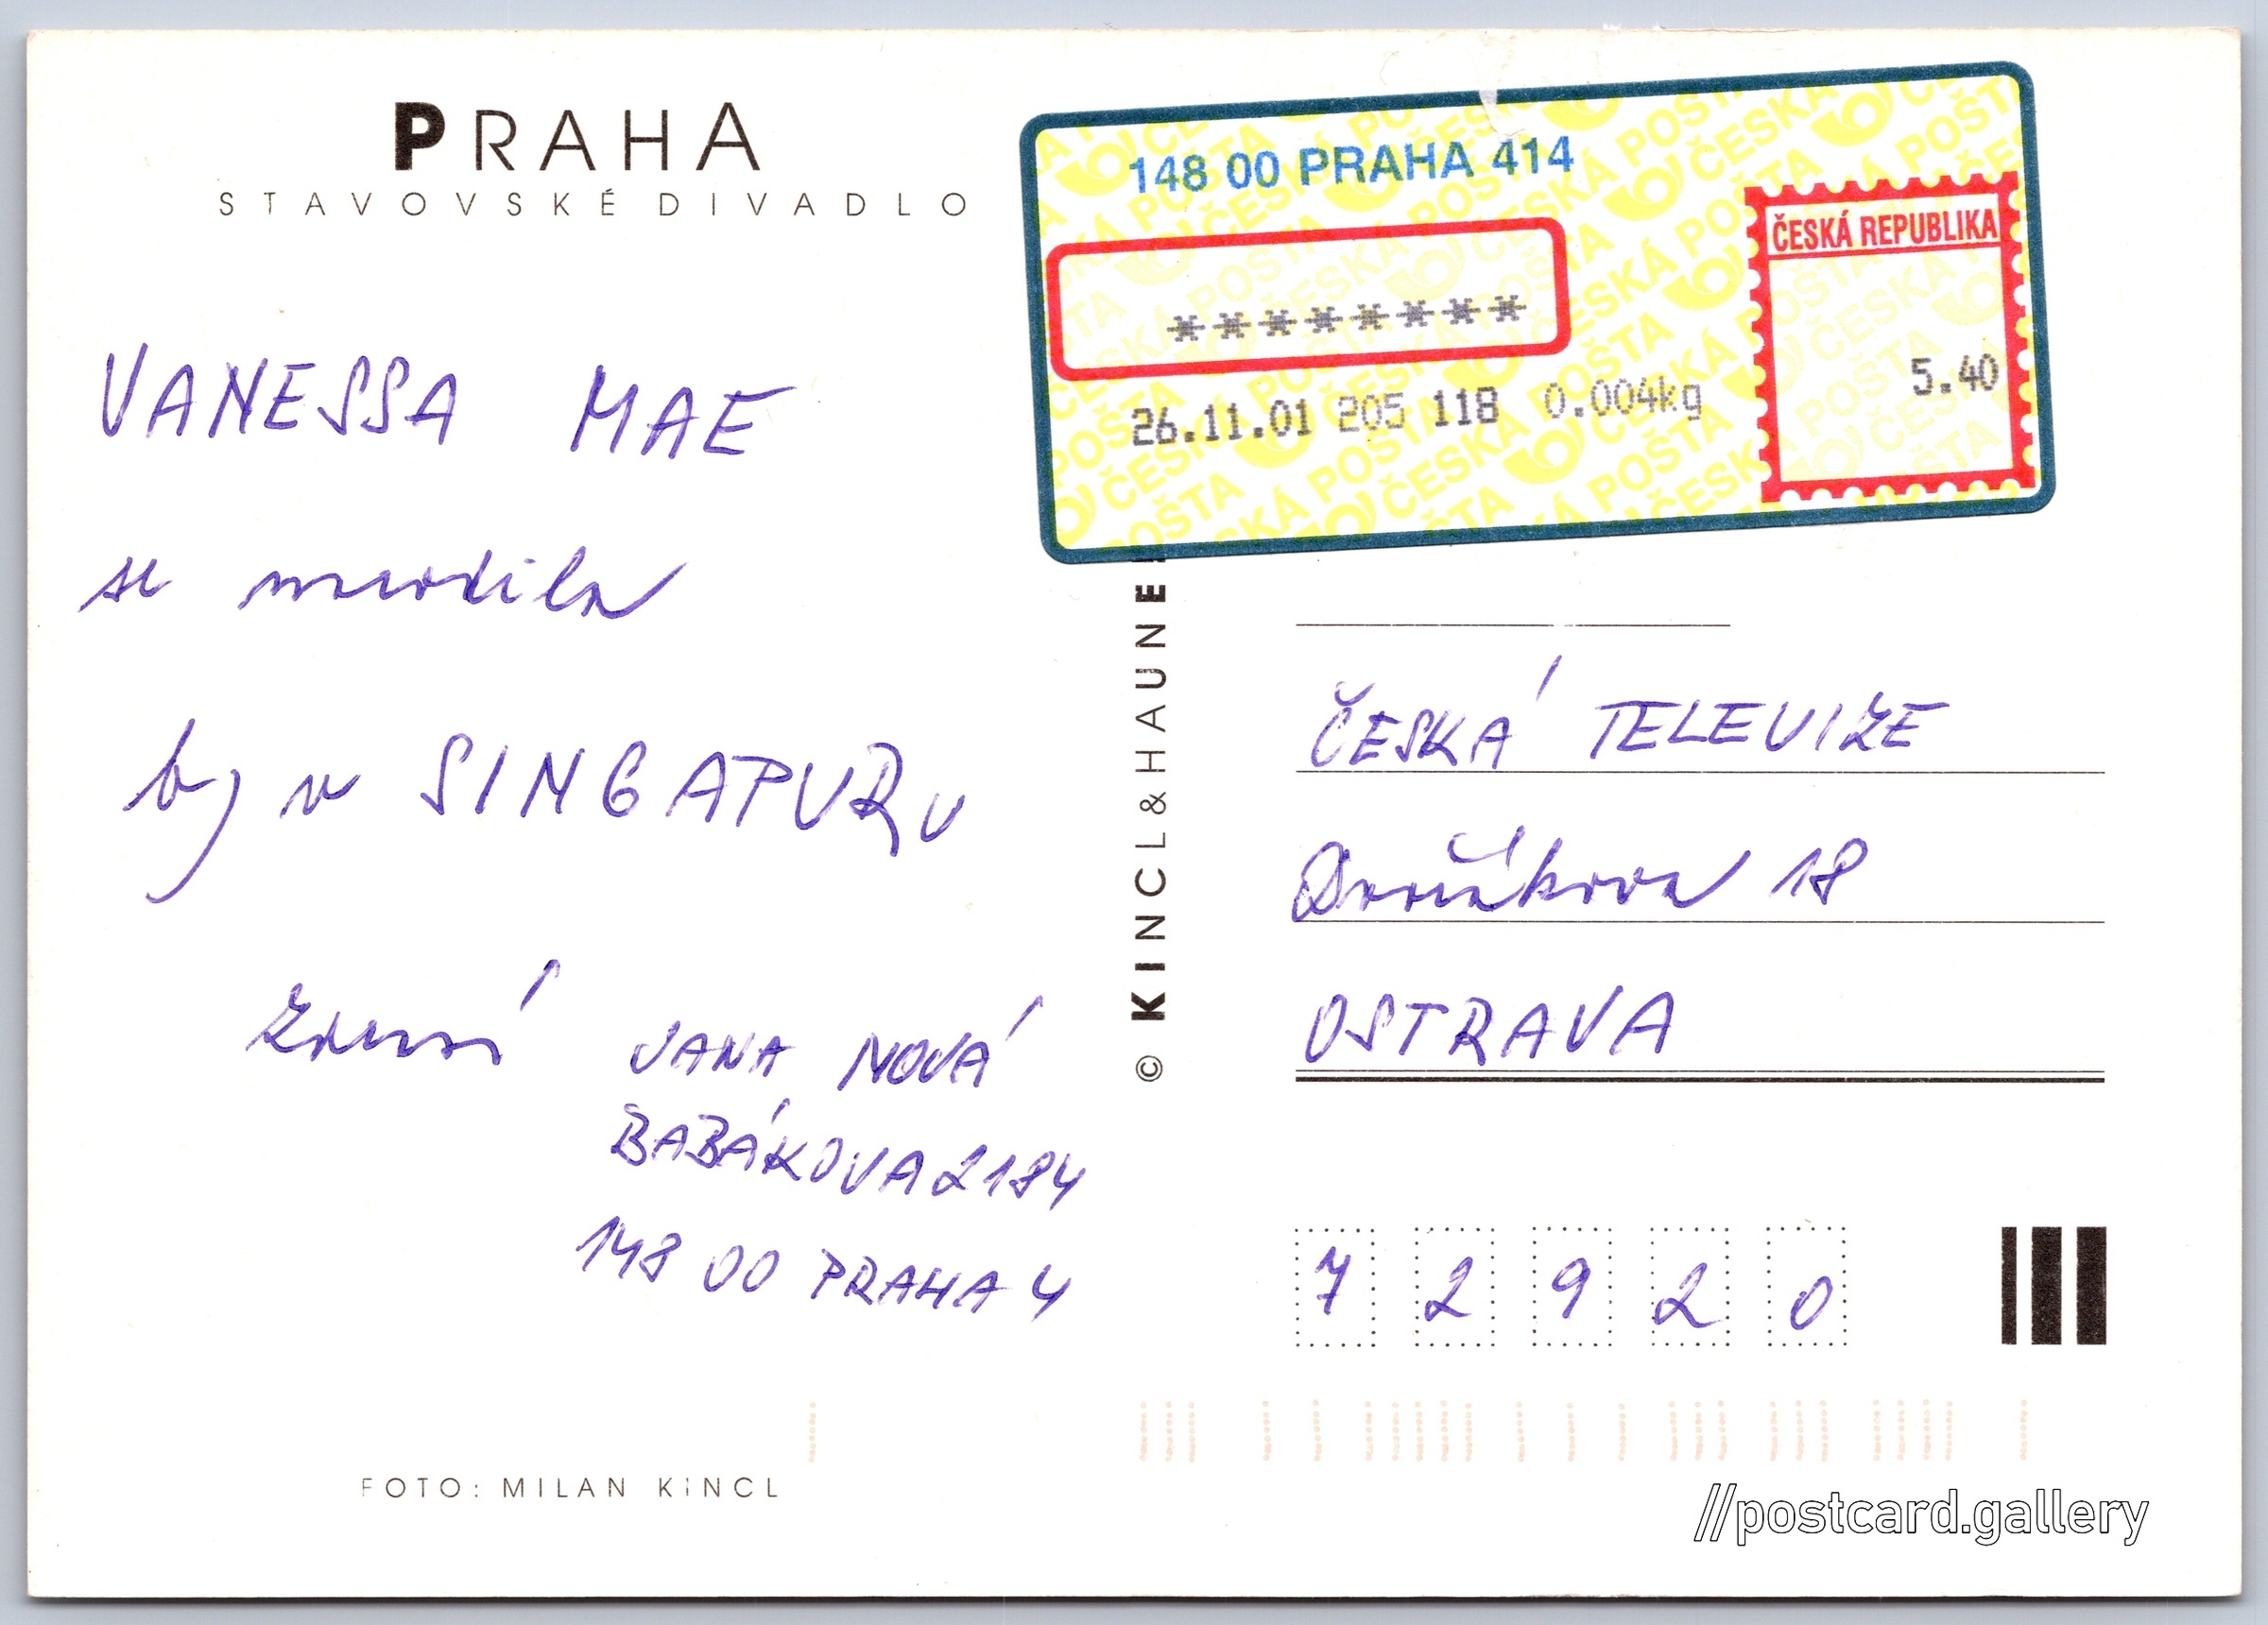 PRAHA
STAVOVSKÉ DIVADLO
VANESSA MAE
se narodila
b) v SINGAPURu
zdraví JANA NOVÁ
BABÁKOVA 2184
148 00 PRAHA 4
FOTO: MILAN KINCL
© KINCL&HAUNE
148 00 PRAHA 414
********
26.11.01 205 118 0.004kg
ČESKÁ REPUBLIKA
5.40
ČESKÁ TELEVIZE
Dvořákova 18
OSTRAVA
7 2 9 2 0
//postcard.gallery